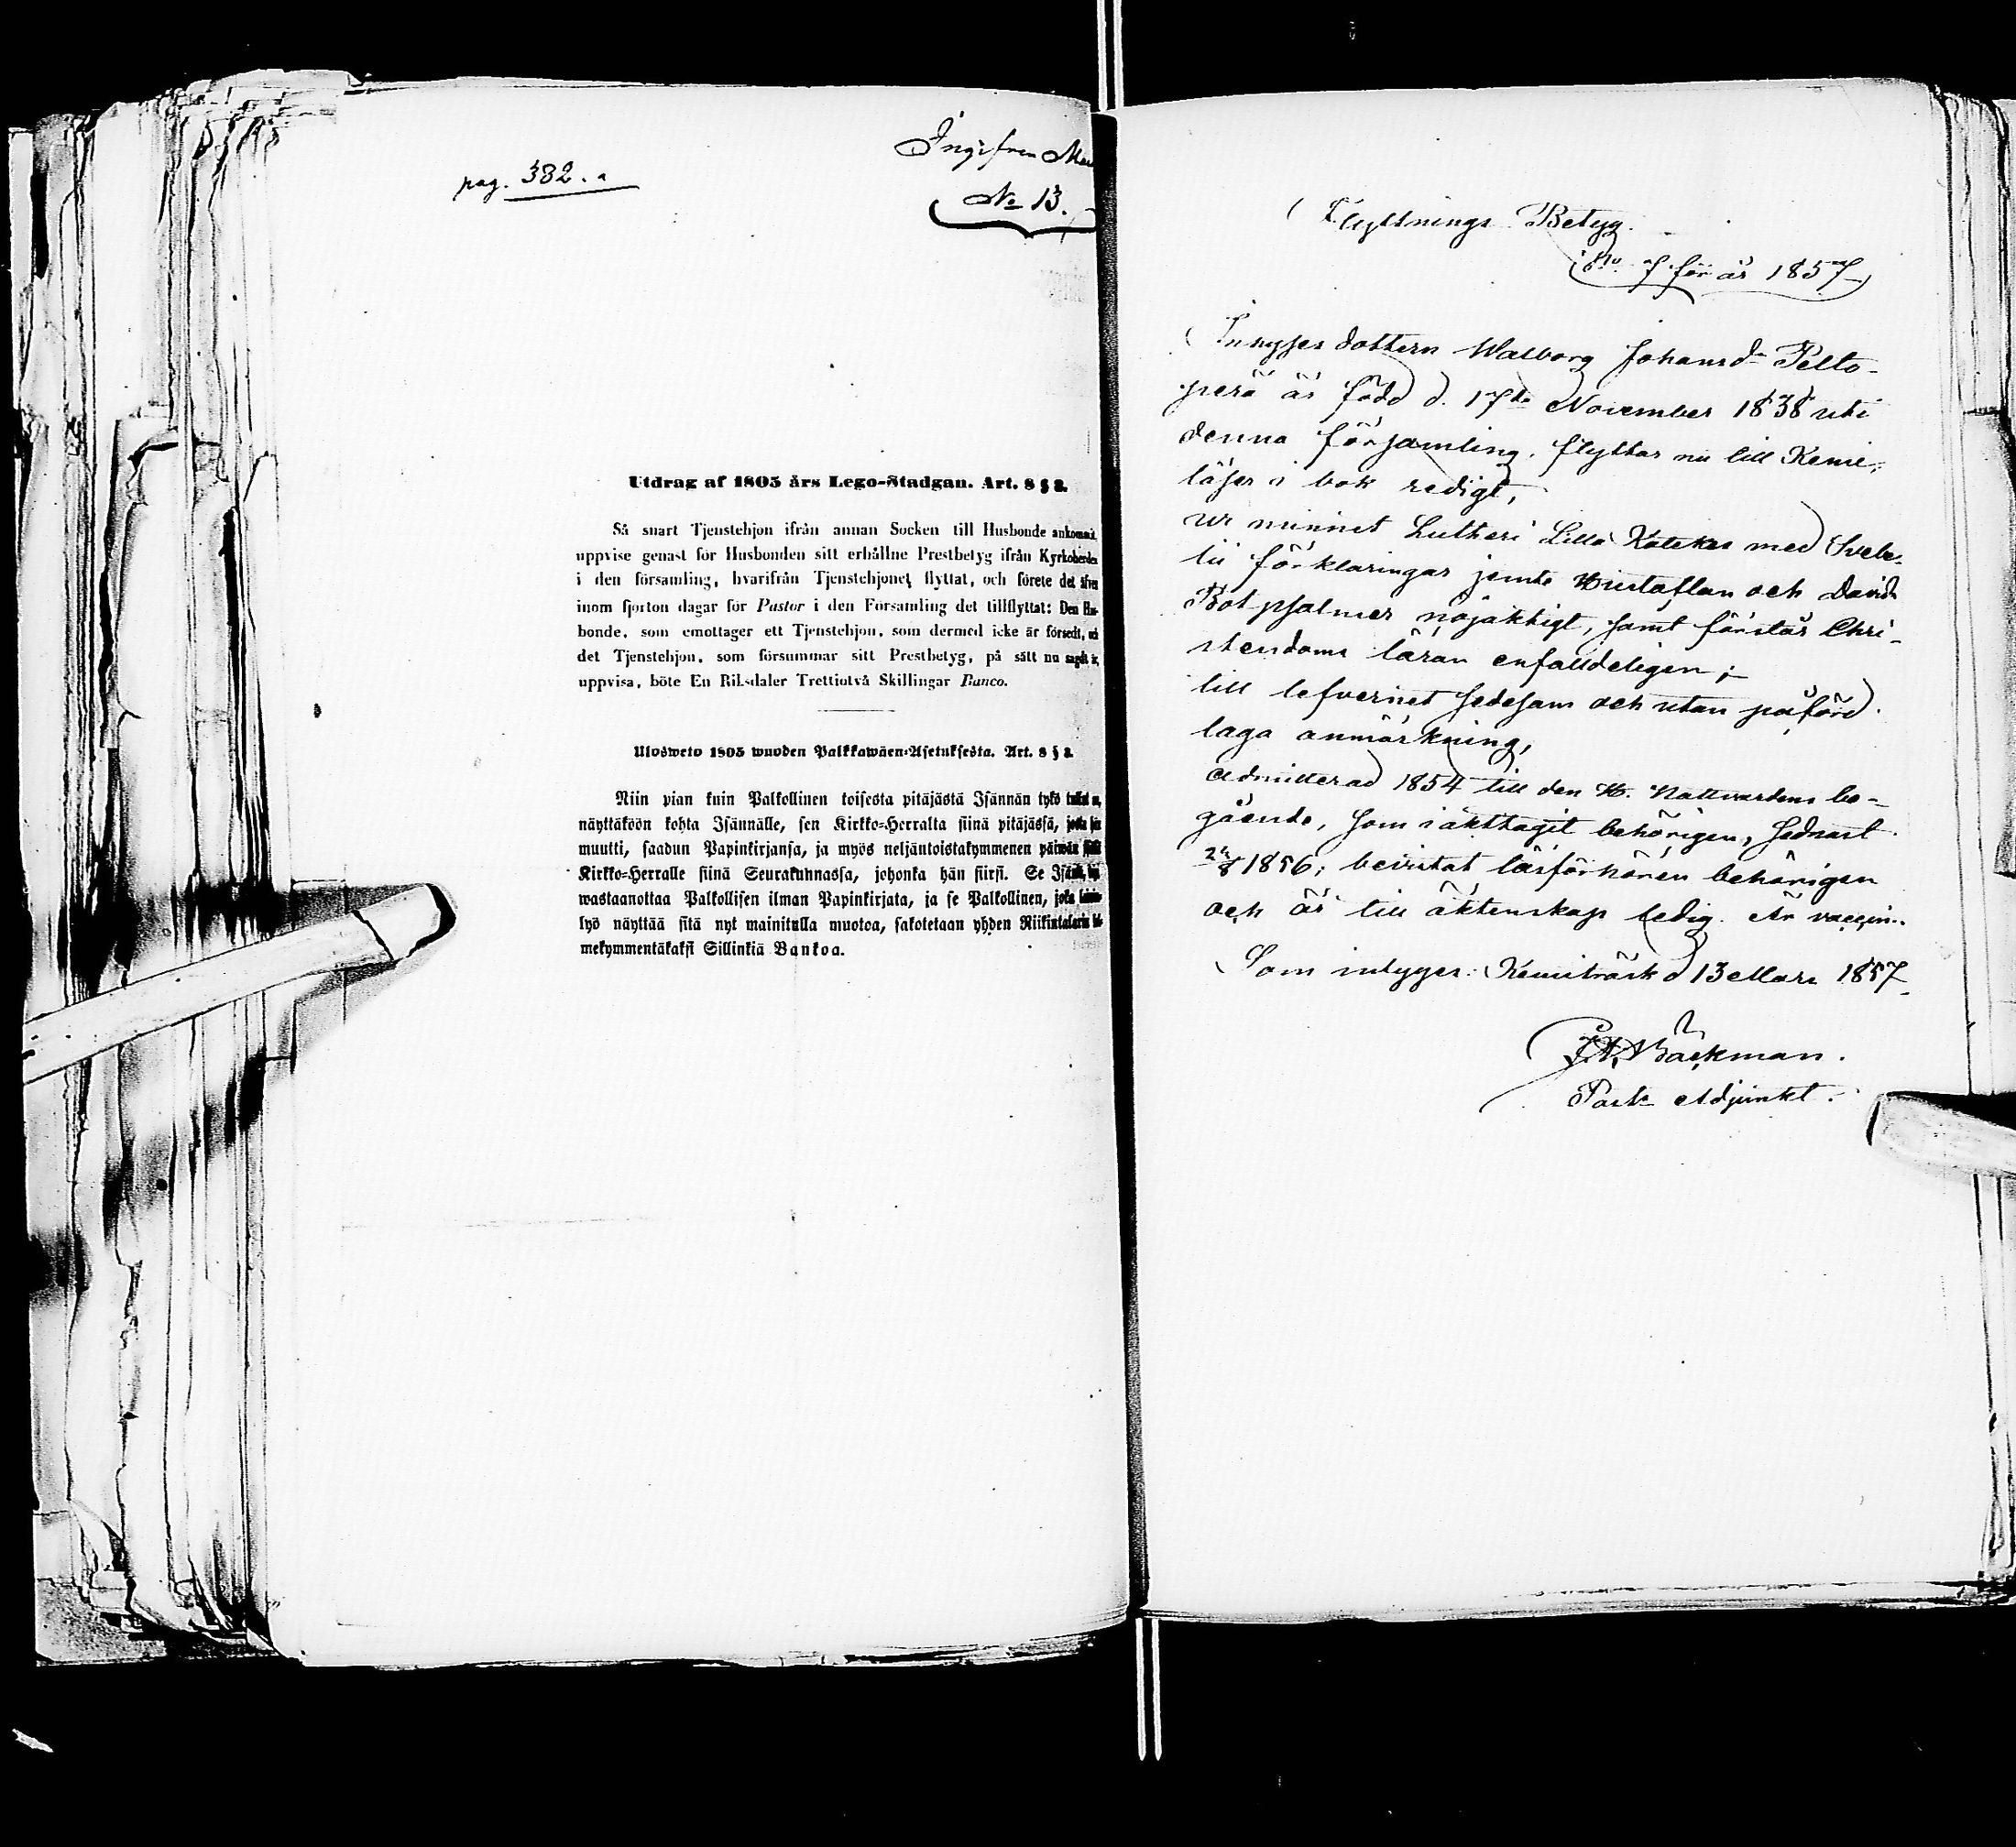 pag. 382. a
No 13.
Utdrag af 1805 års Lego-Stadgan. Art. 8 § 2.
Så snart Tjenstehjon ifrån annan Socken till Husbonde
uppvise genast för Husbonden sitt erhållne Prestbetyg ifrån Kyrkoherden
i den församling, hvarifrån Tjenstehjonet flyttat, och förete det äfven
inom fjorton dagar för Pastor i den Församling det tillflyttat: Den Hus-
bonde, som emottager ett Tjenstehjon, som dermed icke är försedt, och
det Tjenstehjon, som försummar sitt Prestbetyg, på sätt nu sagdt är,
uppvisa, böte En Riksdaler Trettiotvå Skillingar Banco.
Ulosweto 1805 wuoden Palkkawäen-Asetuksesta. Art. 8 § 2.
Niin pian kuin Palkollinen toisesta pitäjästä Isännän tykö
näyttäköön kohta Isännälle, sen Kirkko-Herralta siinä pitäjässä,
muutti, saadun Papinkirjansa, ja myös neljäntoistakymmenen päiwän
Kirkko-Herralle siinä Seurakunnassa, johonka hän siirsi. Se
wastaanottaa Palkollisen ilman Papinkirjata, ja se Palkollinen, joka
lyö näyttää sitä nyt mainitulla muotoa, sakotetaan yhden Riikintalarin
mekymmentäkaksi Sillinkiä Bankoa.
Flyttnings Betyg.
No 7 för år 1857
dottern Walborg Johansdr Pelto-
perä är född d. 17de November 1838 uti
denna församling, flyttar nu till Kemi,
läser i bok redigt,
ur minnet Lutheri Lilla Kateches med Svebe-
lii förklaringar jemte Hustaflan och Davids
Botpsalmer nöjaktigt, samt förstår Chri-
stendoms läran enfaldeligen;
till lefvernet sedesam och utan påförd
laga anmärkning,
admitterad 1854 till den H. Nattvardens be-
gående, som iakttagit behörigen, sednast
1856; bevistat läsförhören behörigen
och är till äktenskap ledig. Är vaccin.
Som intygar: Kemiträsk d 13 Mars 1857
Bäckman.
Past. Adjunkt.